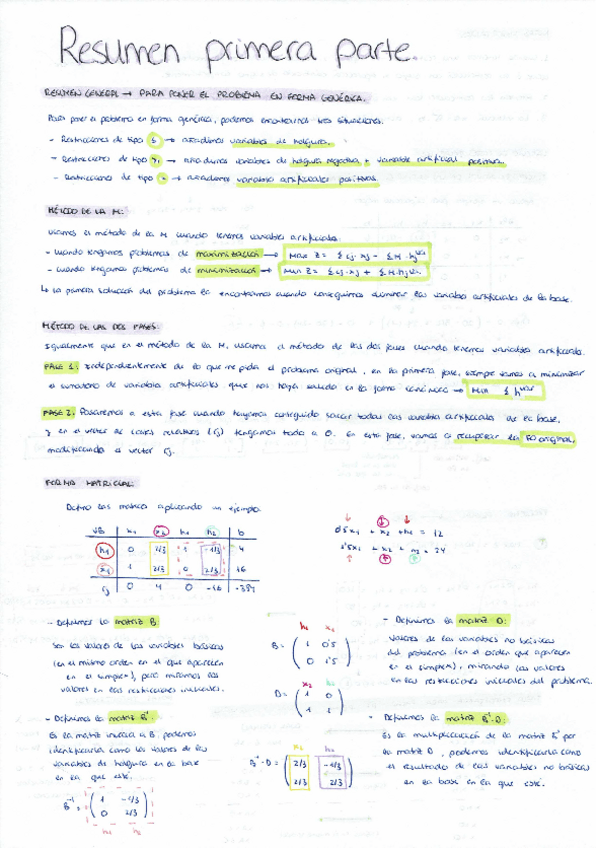 Resumen primera parte.
RESUMEN GENERAL → PARA PONER EL PROBLEMA EN FORMA GENÉRICA.
Para poner el problema en forma genérica, podemos encontrarnos tres situaciones:
- Restricciones de tipo ≤ → añadimos variables de holgura.
- Restricciones de tipo ≥ → añadimos variables de holgura negativa + variable artificial positiva.
- Restricciones de tipo = → añadimos variables artificiales positivas.
MÉTODO DE LA M:
usamos el método de la M cuando tenemos variables artificiales.
- cuando tengamos problemas de maximización →
- cuando tengamos problemas de minimización →
↳ La primera solución del problema la encontramos cuando conseguimos eliminar las variables artificiales de la base.
MÉTODO DE LAS DOS FASES:
Igualmente que en el método de la M, usamos el método de las dos fases cuando tenemos variables artificiales.
FASE 1: Independientemente de lo que me pida el problema original, en la primera fase, siempre vamos a minimizar
el sumatorio de variables artificiales que nos haya salido en la forma canónica →
FASE 2: Pasaremos a esta fase cuando hayamos conseguido sacar todas las variables artificiales de la base,
y en el vector de costes relativos (cj) tengamos todo a 0. En esta fase, vamos a recuperar la FO original,
modificando el vector cj.
FORMA MATRICIAL:
Defino las matrices aplicando un ejemplo.
VB x1 x2 h1 h2 b
h1 0 2/3 1 -1/3 4
x1 1 2/3 0 2/3 16
cj 0 4 0 -16 -384
0'5x1 + x2 + h1 = 12
1'5x1 + x2 + h2 = 24
- Definimos la matriz B:
Son los valores de las variables básicas
(en el mismo orden en el que aparecen
en el simplex), pero miramos los
valores en las restricciones iniciales.
h1 x1
B = ( 1 0'5
0 1'5 )
x2 h2
D = ( 1 0
1 1 )
- Definimos la matriz D:
Valores de las variables no básicas
del problema (en el orden que aparecen
en el simplex), mirando los valores
en las restricciones iniciales del problema.
- Definimos la matriz B⁻¹:
Es la matriz inversa a B, podemos
identificarla como los valores de las
variables de holgura en la base
en la que esté.
B⁻¹ = ( 1 -1/3
0 2/3 )
h1 h2
B⁻¹·D = ( 2/3 -1/3
2/3 2/3 )
- Definimos la matriz B⁻¹·D:
Es la multiplicación de la matriz B⁻¹ por
la matriz D, podemos identificarla como
el resultado de las variables no básicas
en la base en la que esté.